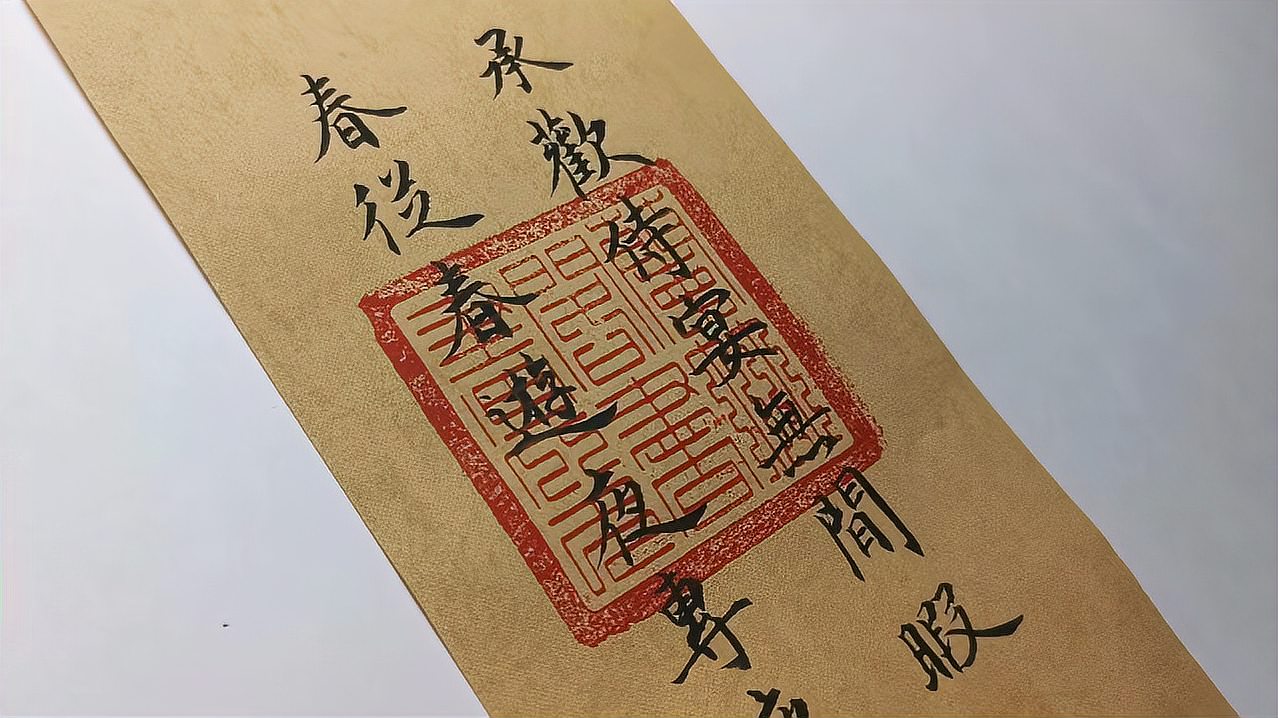 承歡侍宴無間暇
春從春遊夜專